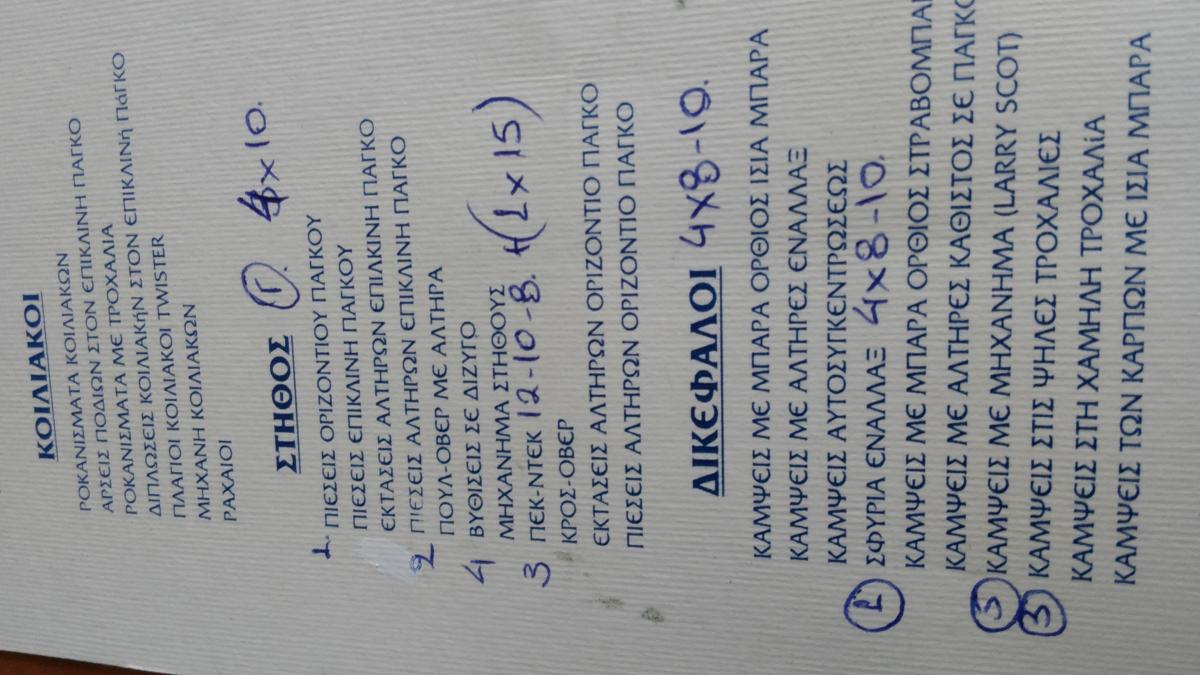 ΚΟΙΛΙΑΚΟΙ
ΡΟΚΑΝΙΣΜΑΤΑ ΚΟΙΛΙΑΚΩΝ
ΑΡΣΕΙΣ ΠΟΔΙΩΝ ΣΤΟΝ ΕΠΙΚΛΙΝΗ ΠΑΓΚΟ
ΡΟΚΑΝΙΣΜΑΤΑ ΜΕ ΤΡΟΧΑΛΙΑ
ΔΙΠΛΩΣΕΙΣ ΚΟΙΛΙΑΚήΝ ΣΤΟΝ ΕΠΙΚΛΙΝή ΠάΓΚΟ
ΠΛΑΓΙΟΙ ΚΟΙΛΙΑΚΟΙ TWISTER
ΜΗΧΑΝΗ ΚΟΙΛΙΑΚΩΝ
ΡΑΧΑΙΟΙ
ΣΤΗΘΟΣ 1. 4x10.
1. ΠΙΕΣΕΙΣ ΟΡΙΖΟΝΤΙΟΥ ΠΑΓΚΟΥ
ΠΙΕΣΕΙΣ ΕΠΙΚΛΙΝΗ ΠΑΓΚΟΥ
ΕΚΤΑΣΕΙΣ ΑΛΤΗΡΩΝ ΕΠΙΛΚΙΝΗ ΠΑΓΚΟ
2 ΠΙΕΣΕΙΣ ΑΛΤΗΡΩΝ ΕΠΙΚΛΙΝΗ ΠΑΓΚΟ
ΠΟΥΛ-ΟΒΕΡ ΜΕ ΑΛΤΗΡΑ
4 ΒΥΘΙΣΕΙΣ ΣΕ ΔΙΖΥΓΟ
ΜΗΧΑΝΗΜΑ ΣΤΗΘΟΥΣ
3 ΠΕΚ-ΝΤΕΚ 12-10-8. +(1x15)
ΚΡΟΣ-ΟΒΕΡ
ΕΚΤΑΣΕΙΣ ΑΛΤΗΡΩΝ ΟΡΙΖΟΝΤΙΟ ΠΑΓΚΟ
ΠΙΕΣΕΙΣ ΑΛΤΗΡΩΝ ΟΡΙΖΟΝΤΙΟ ΠΑΓΚΟ
ΔΙΚΕΦΑΛΟΙ 4x8-10.
ΚΑΜΨΕΙΣ ΜΕ ΜΠΑΡΑ ΟΡΘΙΟΣ ΙΣΙΑ ΜΠΑΡΑ
ΚΑΜΨΕΙΣ ΜΕ ΑΛΤΗΡΕΣ ΕΝΑΛΛΑΞ
ΚΑΜΨΕΙΣ ΑΥΤΟΣΥΓΚΕΝΤΡΩΣΕΩΣ
1 ΣΦΥΡΙΑ ΕΝΑΛΛΑΞ 4x8-10.
ΚΑΜΨΕΙΣ ΜΕ ΜΠΑΡΑ ΟΡΘΙΟΣ ΣΤΡΑΒΟΜΠΑ
ΚΑΜΨΕΙΣ ΜΕ ΑΛΤΗΡΕΣ ΚΑΘΙΣΤΟΣ ΣΕ ΠΑΓΚΟ
3 ΚΑΜΨΕΙΣ ΜΕ ΜΗΧΑΝΗΜΑ (LARRY SCOT)
3 ΚΑΜΨΕΙΣ ΣΤΙΣ ΨΗΛΕΣ ΤΡΟΧΑΛΙΕΣ
ΚΑΜΨΕΙΣ ΣΤΗ ΧΑΜΗΛΗ ΤΡΟΧΑΛίΑ
ΚΑΜΨΕΙΣ ΤΩΝ ΚΑΡΠΩΝ ΜΕ ΙΣΙΑ ΜΠΑΡΑ